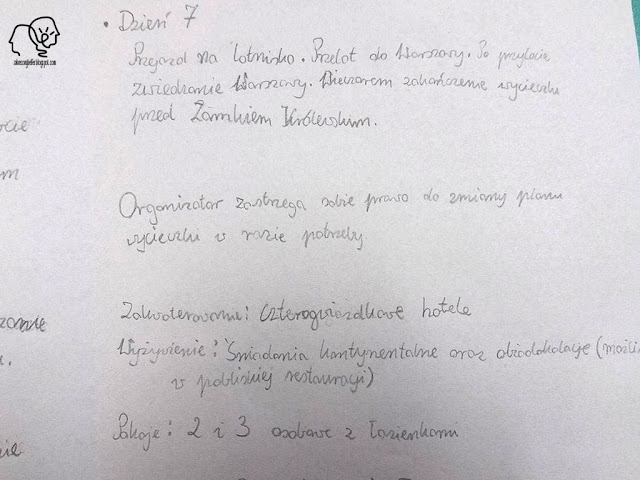 • Dzień 7
Przejazd na lotnisko. Przelot do Warszawy. Po przylocie
zwiedzanie Warszawy. Wieczorem zakończenie wycieczki
przed Zamkiem Królewskim.
Organizator zastrzega sobie prawo do zmiany planu
wycieczki w razie potrzeby
Zakwaterowanie: czterogwiazdkowe hotele
Wyżywienie: Śniadania kontynentalne oraz obiadokolacje (możli
w pobliskiej restauracji)
Pokoje: 2 i 3 osobowe z łazienkami